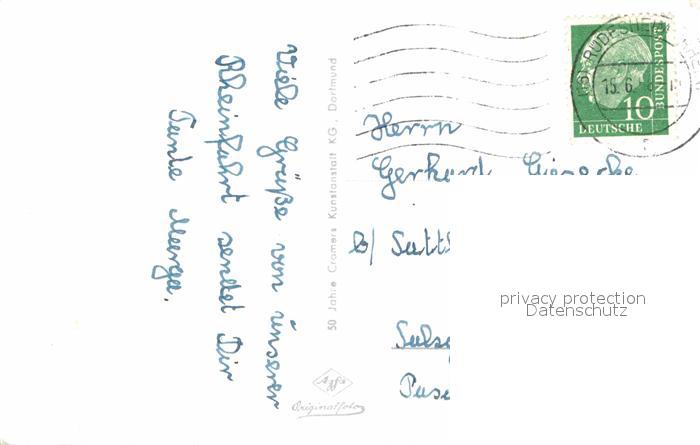 Viele Grüße von unserer
Rheinfahrt sendet Dir
Tante
50 Jahre Cramers Kunstanstalt KG., Dortmund
Agfa
Originalfoto
RÜDESHEIM
15.6.
10
DEUTSCHE
BUNDESPOST
Herrn
Gerhard
b/
privacy protection
Datenschutz